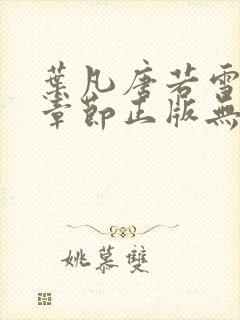 葉凡唐若雪
章節正版無
姚慕雙